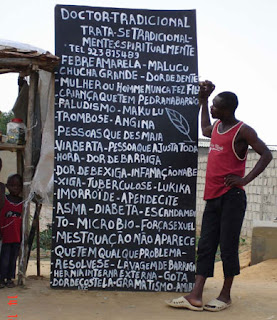 DOCTOR-TRADICIONAL
TRATA-SE TRADICIONAL-
MENTE ESPIRITUALMENTE
TEL 923815489
FEBRE AMARELA-MALUCU
CHUCHA GRANDE-DOR DE DENTE
MULHER OU HOMEM NUNCA FEZ FILHO
CRIANÇA QUE TEM PEDRA NA BARRIGA
PALUDISMO-MAKULU
TROMBOSE-ANGINA
PESSOAS QUE DESMAIA
VIA BERTA-PESSOA QUE AJUSTA TODA
HORA-DOR DE BARRIGA
DOR DE BEXIGA-INFAMAÇÃO NA BE
XIGA-TUBERCULOSE-LUKIKA
IMOROI DE-APENDECITE
ASMA-DIABETA-ESCANDAMEN
TO-MICROBIO-FORÇA SEXUEL
MESTRUAÇÃO NÃO APARECE
QUE TEM QUAL QUE PROBLEMA
RESOLVESE-LAVAGEM DE BARRIGA
HERNIA INTERNA EXTERNA-GOTA
DOR DE COSTELA-GRAMATISMO-AMIBA